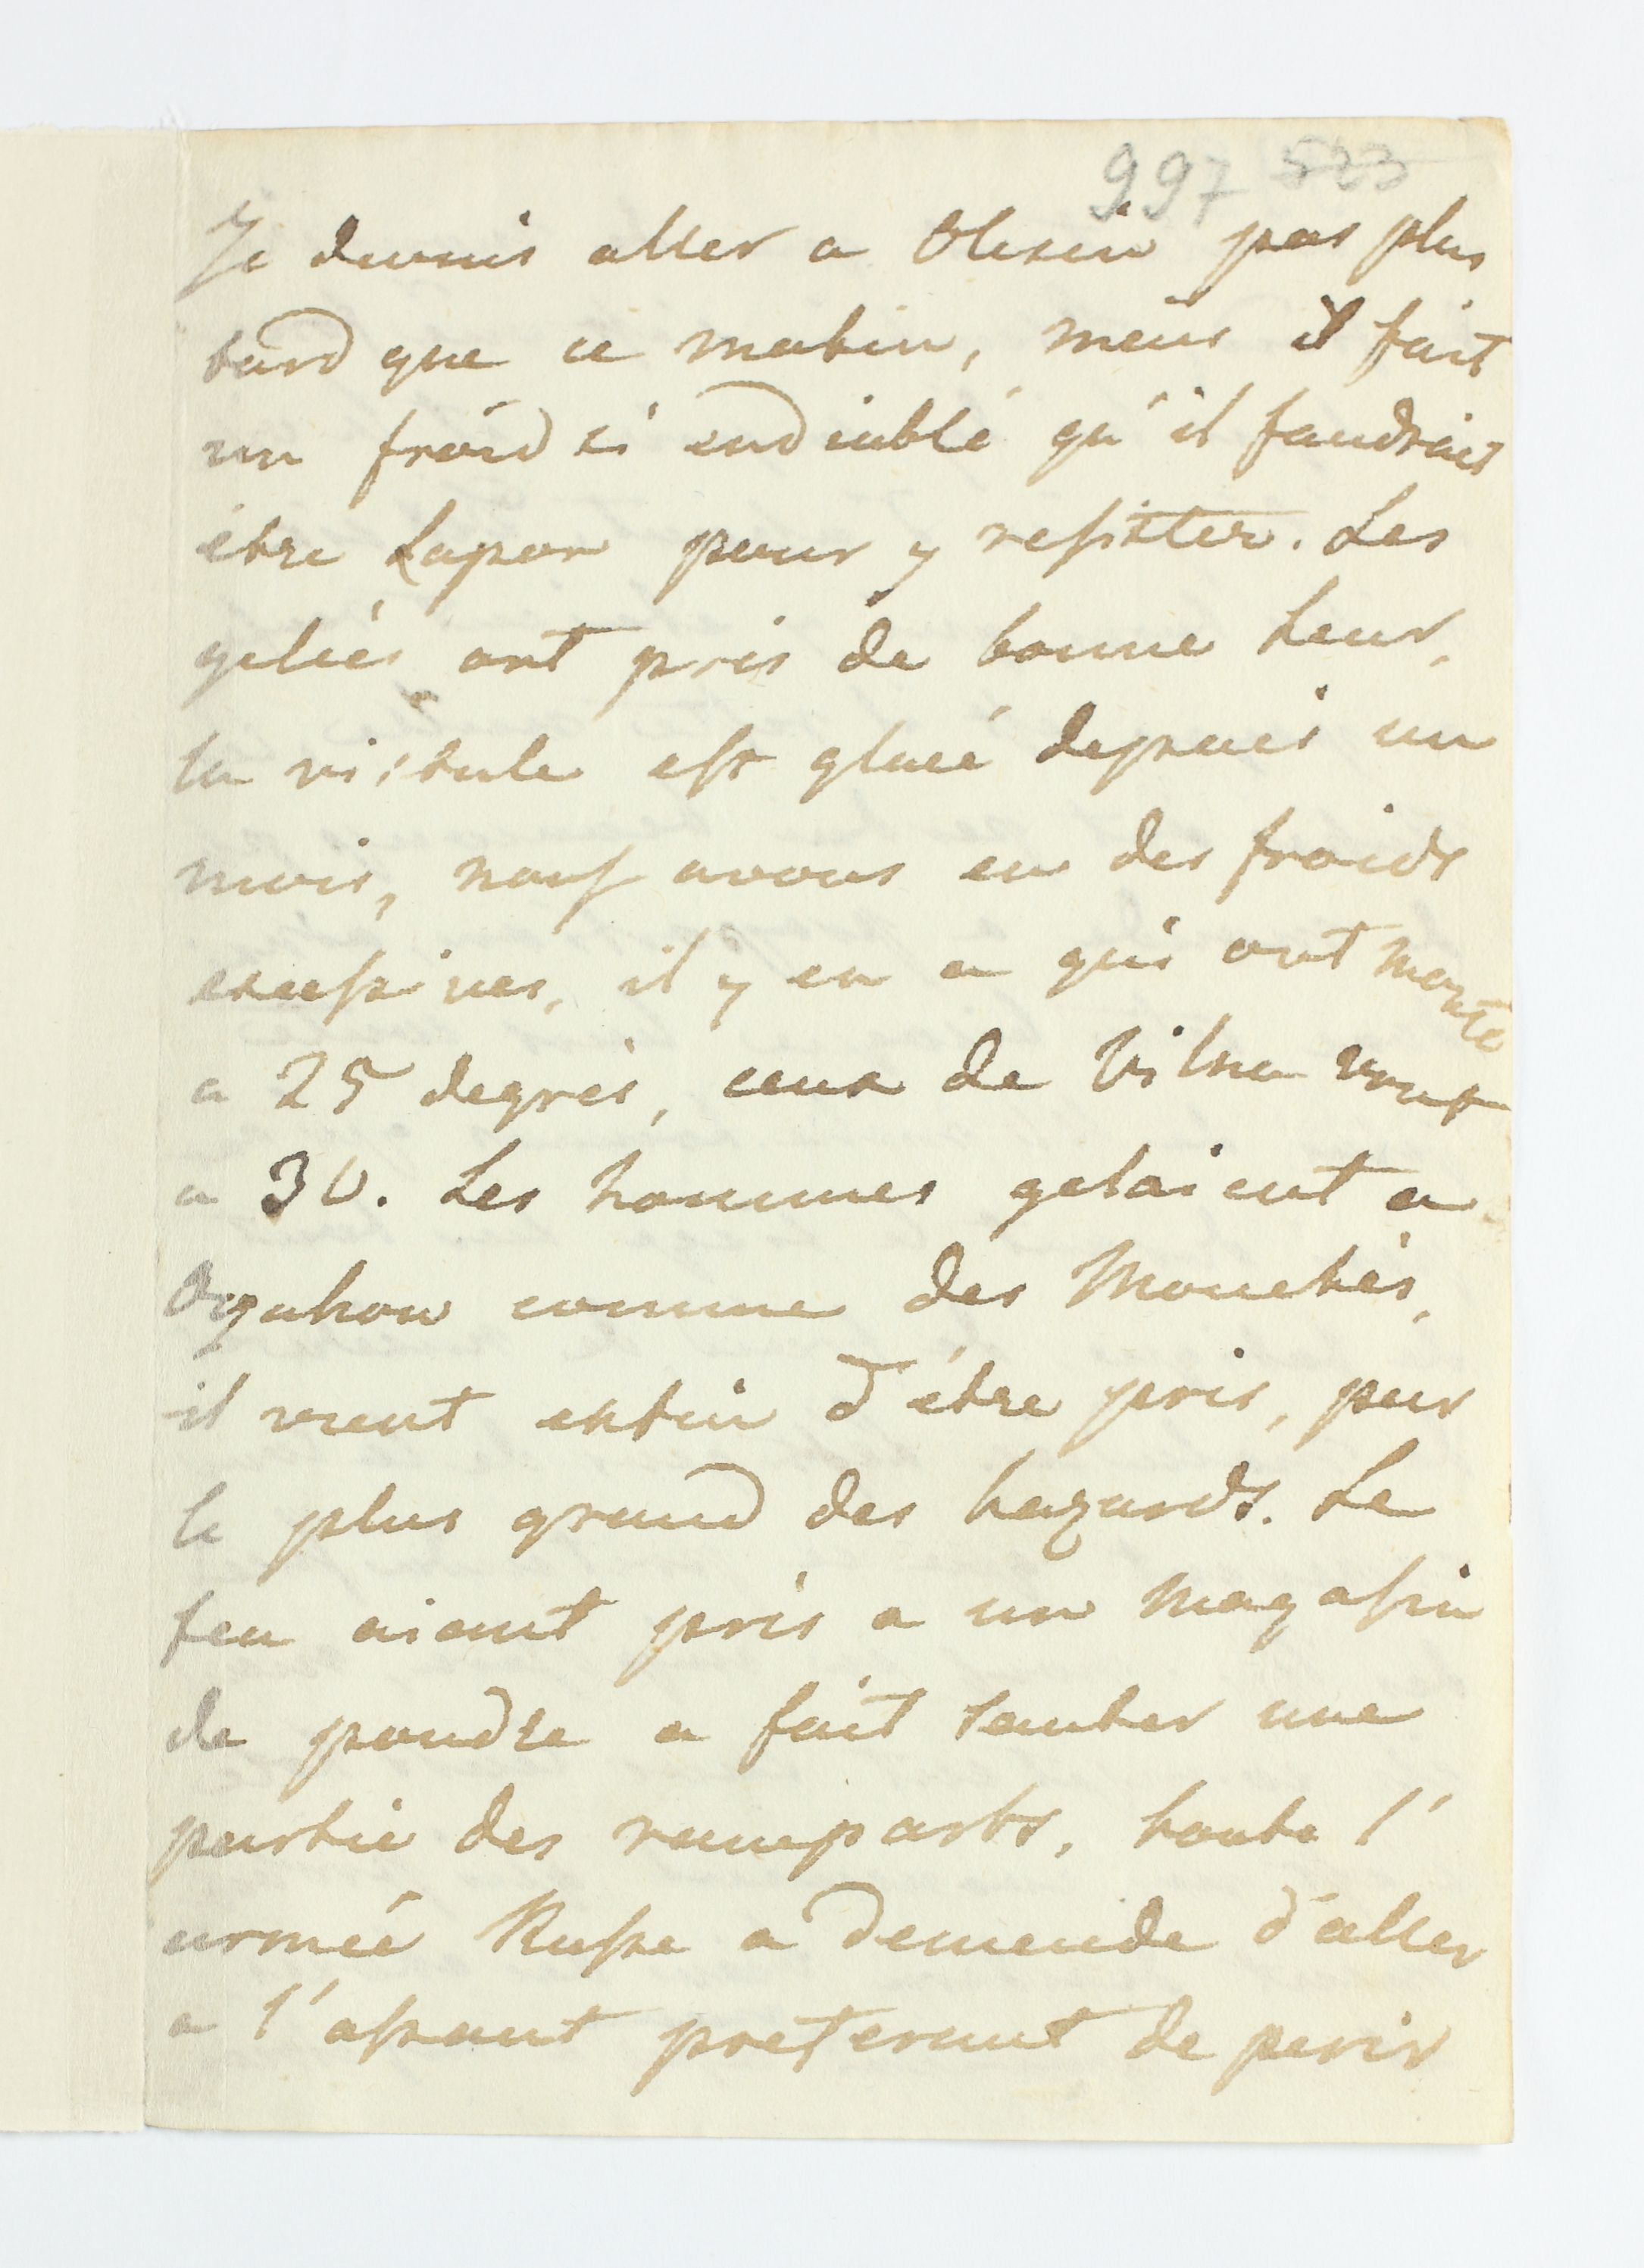 997 523
Je devais aller a Olesin pas plus
tard que ce matin, mais il fait
un froid si endiablé qu'il faudrait
être Lapon pour y resister. Les
geleés ont pris de bonne heur,
la vistule est glacé depuis un
mois, nous avons eu des froids
excessives, il y en a qui ont monté
a 25 degrès, ceux de Vilna vont
a 30. Les hommes gelaient a
Oczakow comme des Mouches,
il vient enfin d'être pris, par
le plus grand des hazards. Le
feu aiant pris a un magasin
de poudre a fait sauter une
partie des ramparts, toute l'
armeé Russe a demende d'aller
a l'assaut preferant de perir